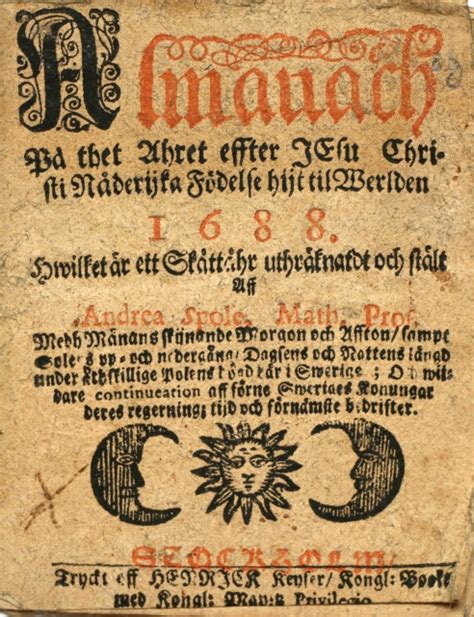 Almanach
På thet Åhret effter JEsu Chri-
sti Nåderijka Födelse hijt til Werlden
1688.
Hwilket är ett Skåttåhr uthräknatdt och stält
Aff
Andrea Spole, Math. Prof.
Medh Månans skijnande Morgon och Affton/ sampt
Solens up- och nedergång/ Dagsens och Nattens längd
under åthskillige Polens högder i Swerige;
continueation aff förne Sweriges Konungar
deres regerning; tijd och förnämste bedrifter.
STOCKHOLM/
Tryckt aff HENRICK Keyser/ Kongl: Bookt
med Kongl: Privilegio